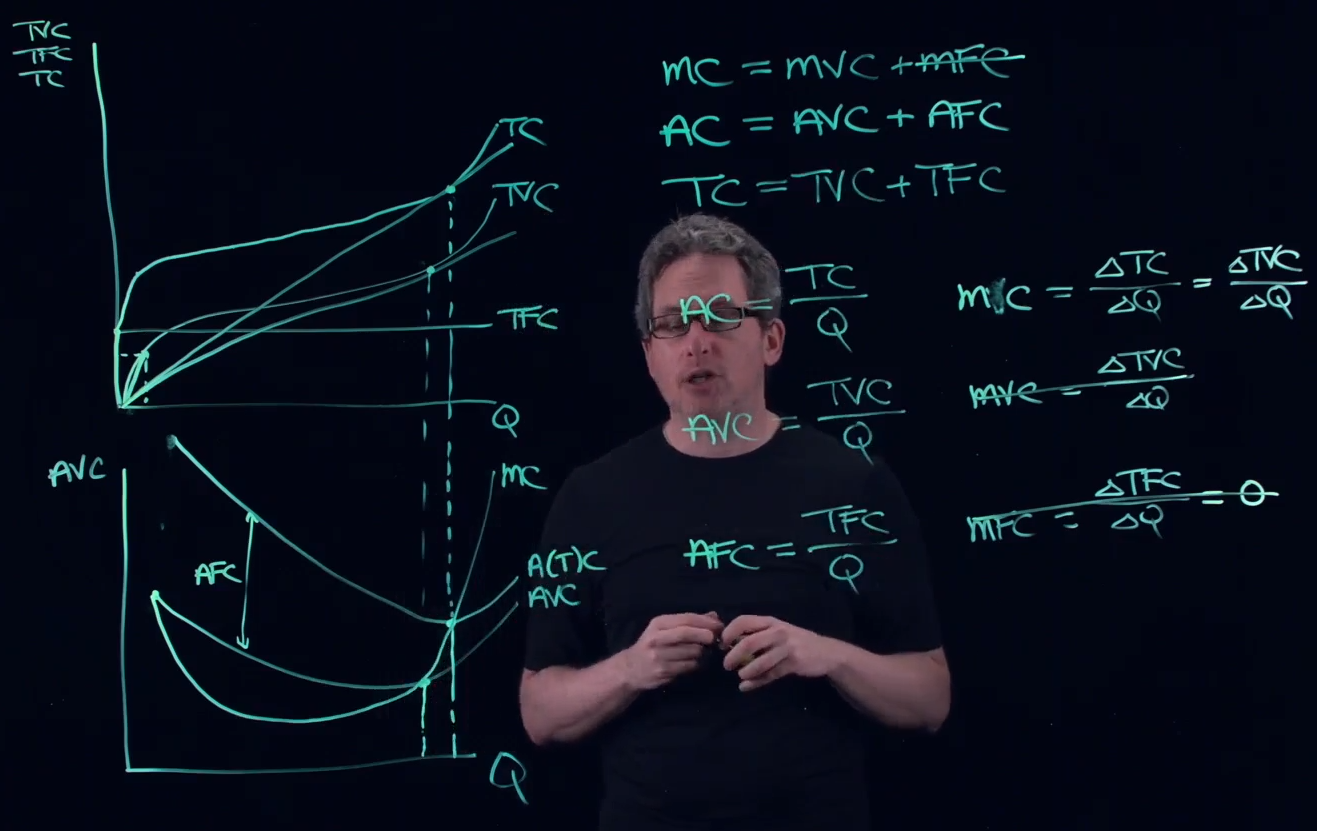 TVC
TFC
TC
TC
TVC
TFC
Q
AVC
MC
AFC
A(T)C
AVC
Q
MC = MVC + MFC
AC = AVC + AFC
TC = TVC + TFC
AC = TC / Q
AVC = TVC / Q
AFC = TFC / Q
MC = ΔTC / ΔQ = ΔTVC / ΔQ
MVC = ΔTVC / ΔQ
MFC = ΔTFC / ΔQ = 0